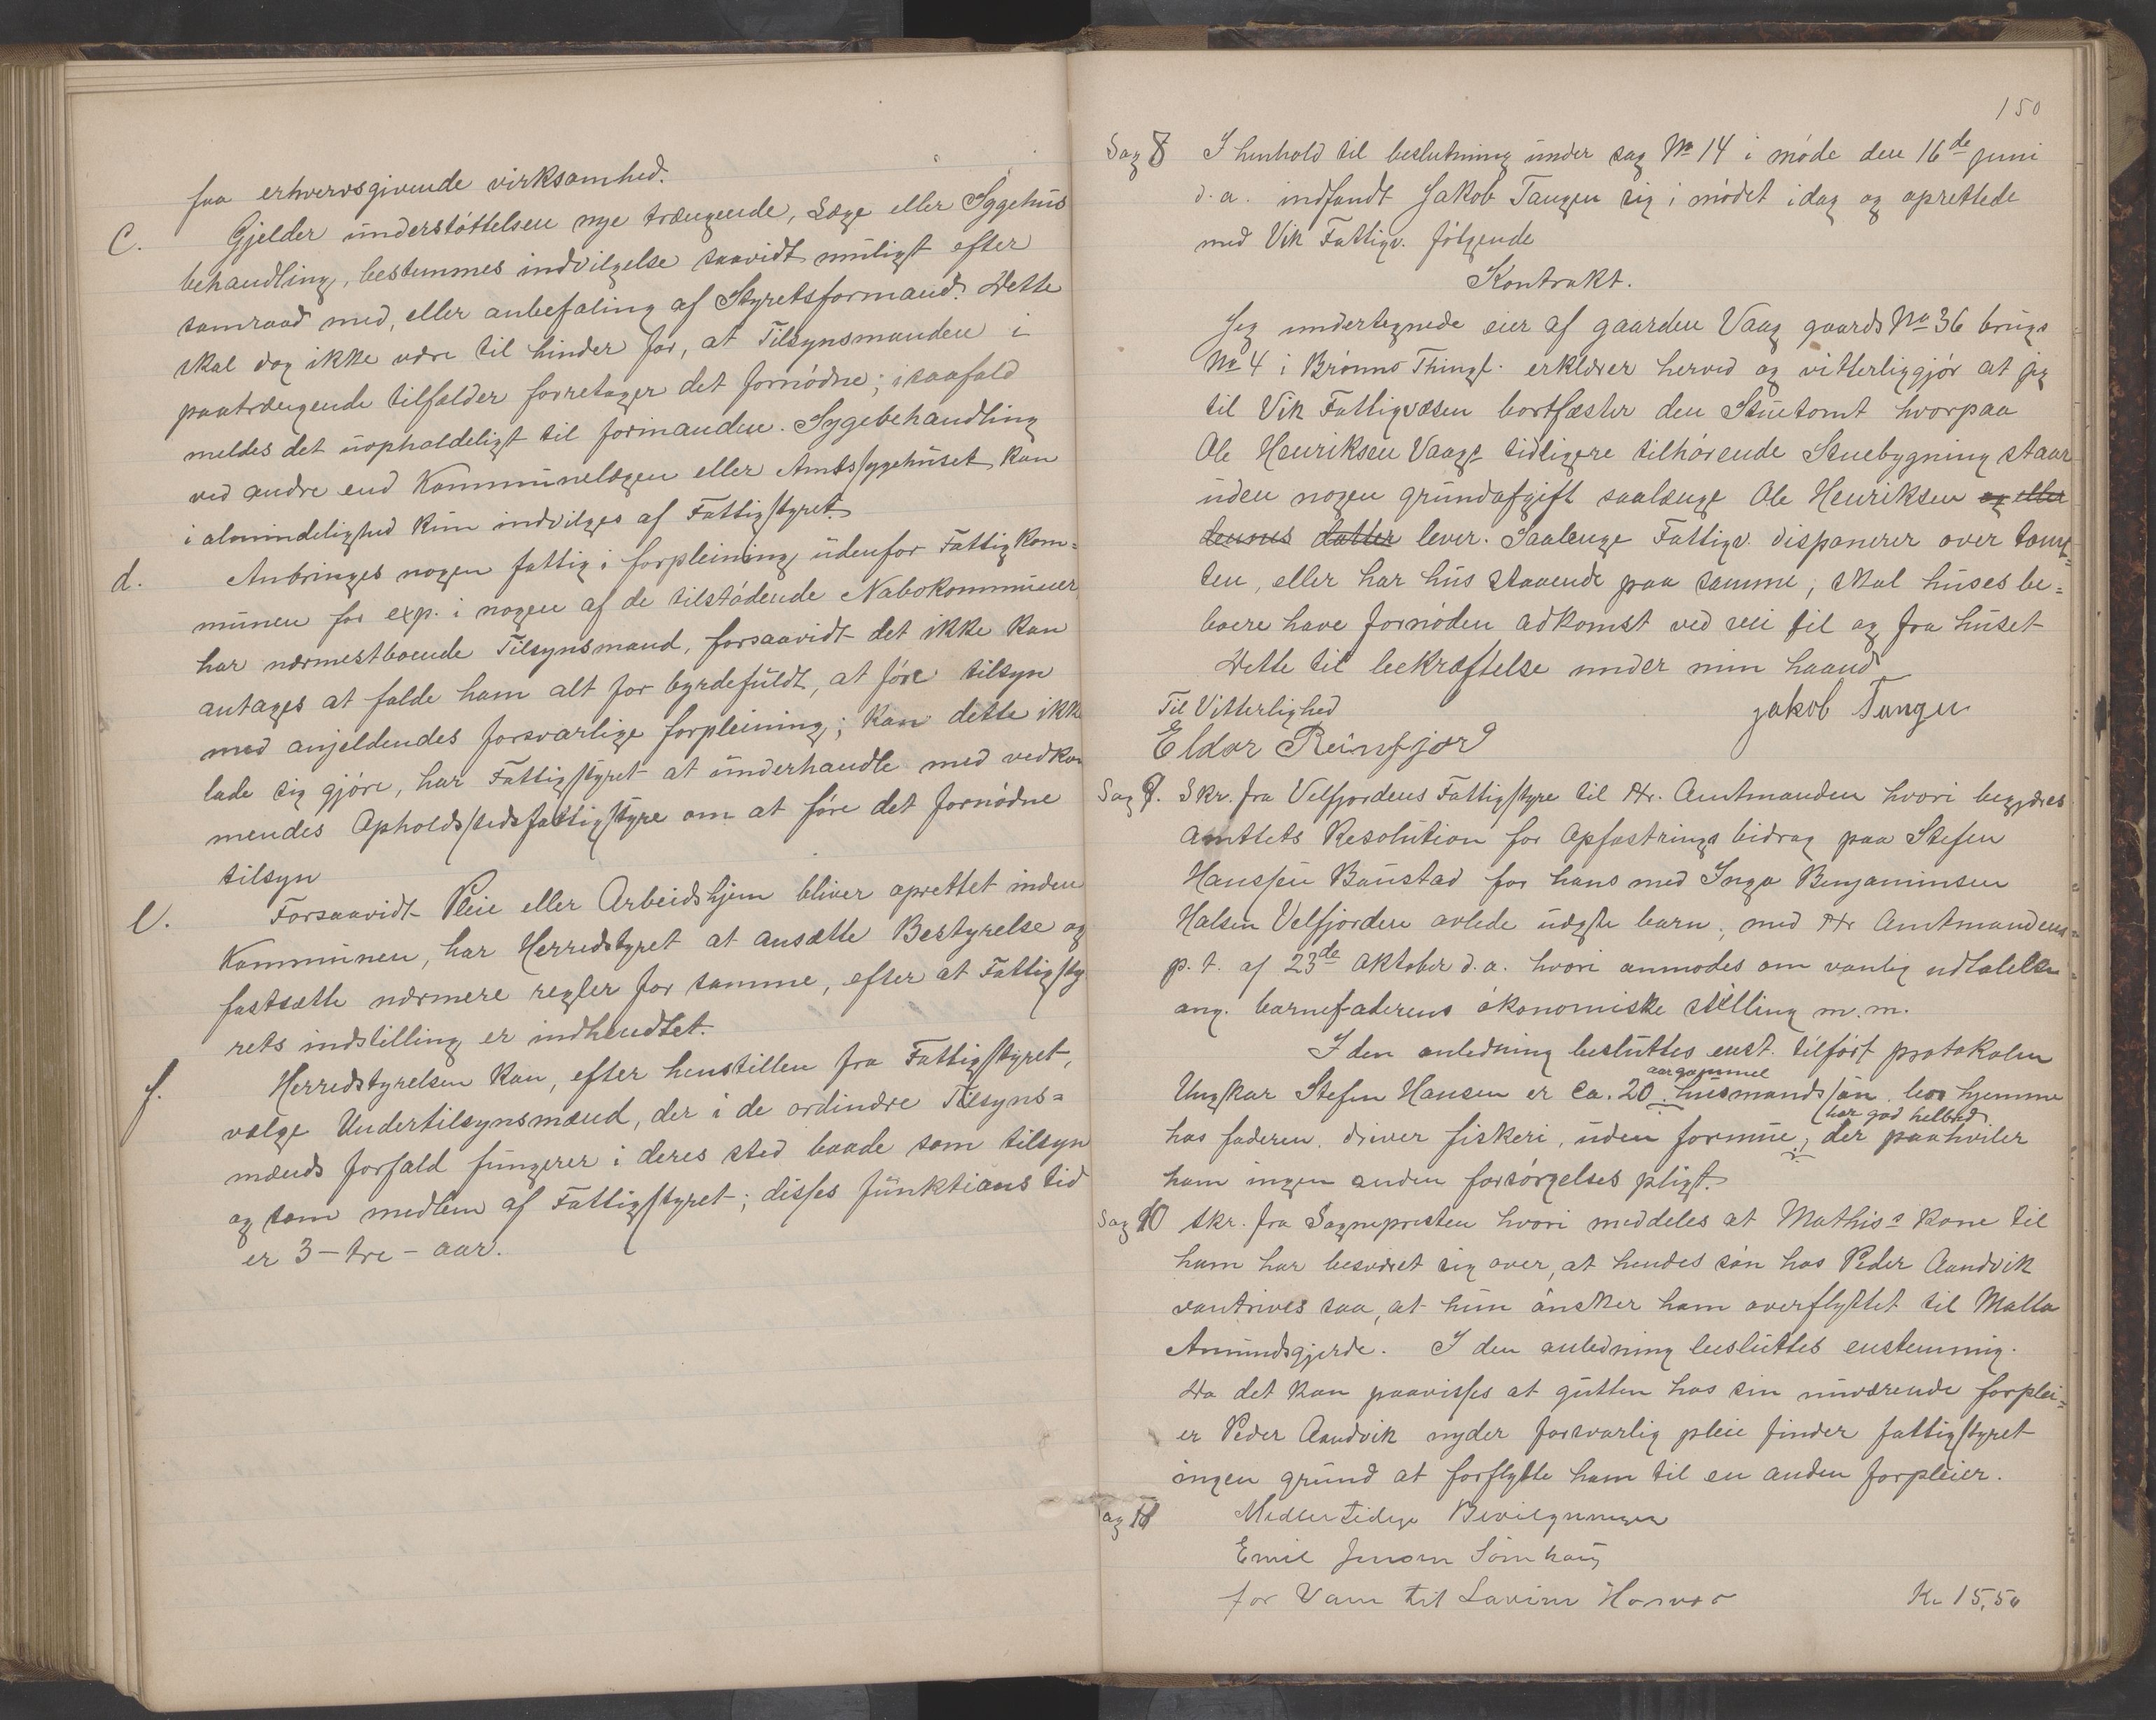 faa erhvervsgivende virksomhed.
C. Gjelder understøttelsen nye trængende, Læge eller Sygehus
behandling, bestemmes indvilgelse saavidt muligst efter
samraad med, eller anbefaling af Styretsformand. Dette
skal dog ikke være til hinder for, at Tilsynsmanden i
paatrængende tilfælder foretager det fornødne; isaafald
meldes det uopholdeligt til formanden. Sygebehandling
ved andre end Kommunelægen eller Amtssygehuset kan
i almindelighed kun indvilges af Fattigstyret.
d. Anbringes nogen fattig i forpleining udenfor Fattigkom=
munen for exp. i nogen af de tilstødende Nabokommuner
har nærmestboende Tilsynsmand, forsaavidt det ikke kan
antages at falde ham alt for byrdefuldt, at føre tilsyn
med anjeldendes forsvarlige forpleining; kan dette ikke
lade sig gjøre, har Fattigstyret at underhandle med vedkom
mendes Opholdsstedsfattigstyre om at føre det fornødne
tilsyn
e. Forsaavidt Pleie eller Arbeidshjem bliver oprettet inden
Kommunen, har Herredstyret at ansætte Bestyrelse og
fastsætte nærmere regler for samme, efter at Fattigsty
rets indstilling er indhendtet.
f. Herredstyrelsen kan, efter henstillen fra Fattigstyret,
vælge Undertilsynsmænd, der i de ordinære Tilsyns=
mænds forfald fungerer i deres sted baade som tilsyn
og som medlem af Fattigstyret; disses funktions tid
er 3 - tre - aar.
150
Sag 8 I henhold til beslutning under sag No 14 i møde den 16de juni
d.a. indfandt Jakob Tangen sig i mødet idag og oprettede
med Vik Fattigv. følgende
Kontrakt.
Jeg undertegnede eier af gaarden Vaag gaards No 36 brugs
No 4 i Brønnø Thingl. erklærer herved og vitterliggjør at jeg
til Vik Fattigvæsen bortfæster den Stuetomt hvorpaa
Ole Henriksen Vaags tidligere tilhørende Stuebygning staar
uden nogen grundafgift saalænge Ole Henriksen og eller
dennes datter lever. Saalenge Fattigv. disponerer over tomt=
ten, eller har hus staaende paa samme, skal huses be=
boere have fornøden adkomst ved vei til og fra huset
Dette til bekræftelse under min haand
Til Vitterlighed
Jakob Tangen
Eldor Reinfjord
Sag 9. Skr. fra Velfjordens Fattigstyre til Hr. Amtmanden hvori begjæres
Amtets Resolution for Opfostrings bidrag paa Stefen
Hanssen Baustad for hans med Inga Benjaminsen
Halsen Velfjorden avlede uægte barn, med Hr Amtmandens
p.t. af 23de Oktober d.a. hvori anmodes om vanlig udtalelse
ang. barnefaderens økonomiske stilling m.m.
I den anledning besluttes enst. tilført protokolen
aargammel
Ungkar Stefen Hansen er ca. 20. husmandssøn, bor hjemme
har god helbred
hos faderen. driver fiskeri, uden formue, der paahviler
ham ingen anden forsørgelses pligt.
Sag 10 Skr. fra Sognepresten hvori meddeles at Mathis's kone til
ham har besværet sig over, at hendes søn hos Peder Aandvik
vantrives saa, at hun ønsker ham overflyttet til Malla
Amundsgjerde. I den anledning besluttes enstemmig.
Da det kan paavisses at gutten hos sin nuværende forplei=
er Peder Aandvik nyder forsvarlig pleie finder fattigstyret
ingen grund at forflytte ham til en anden forpleier.
Sag 11 Medlertidige Bevilgninger
Emil Jenson
for Varer til Lavine
Kr 15,50